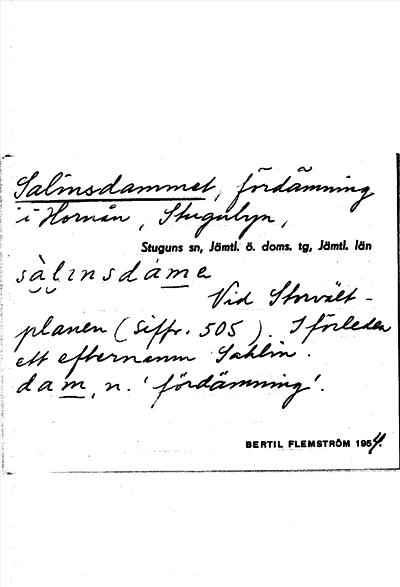 Salinsdammet, fördämning
i Hornån, Stugubyn,
Stuguns sn, Jämtl. ö. doms. tg, Jämtl. län
sàlınsdáme
Vid Storvält-
planen (siffr. 505). I förleden
ett efternamn Sahlin.
dam, n. 'fördämning'.
BERTIL FLEMSTRÖM 1954.